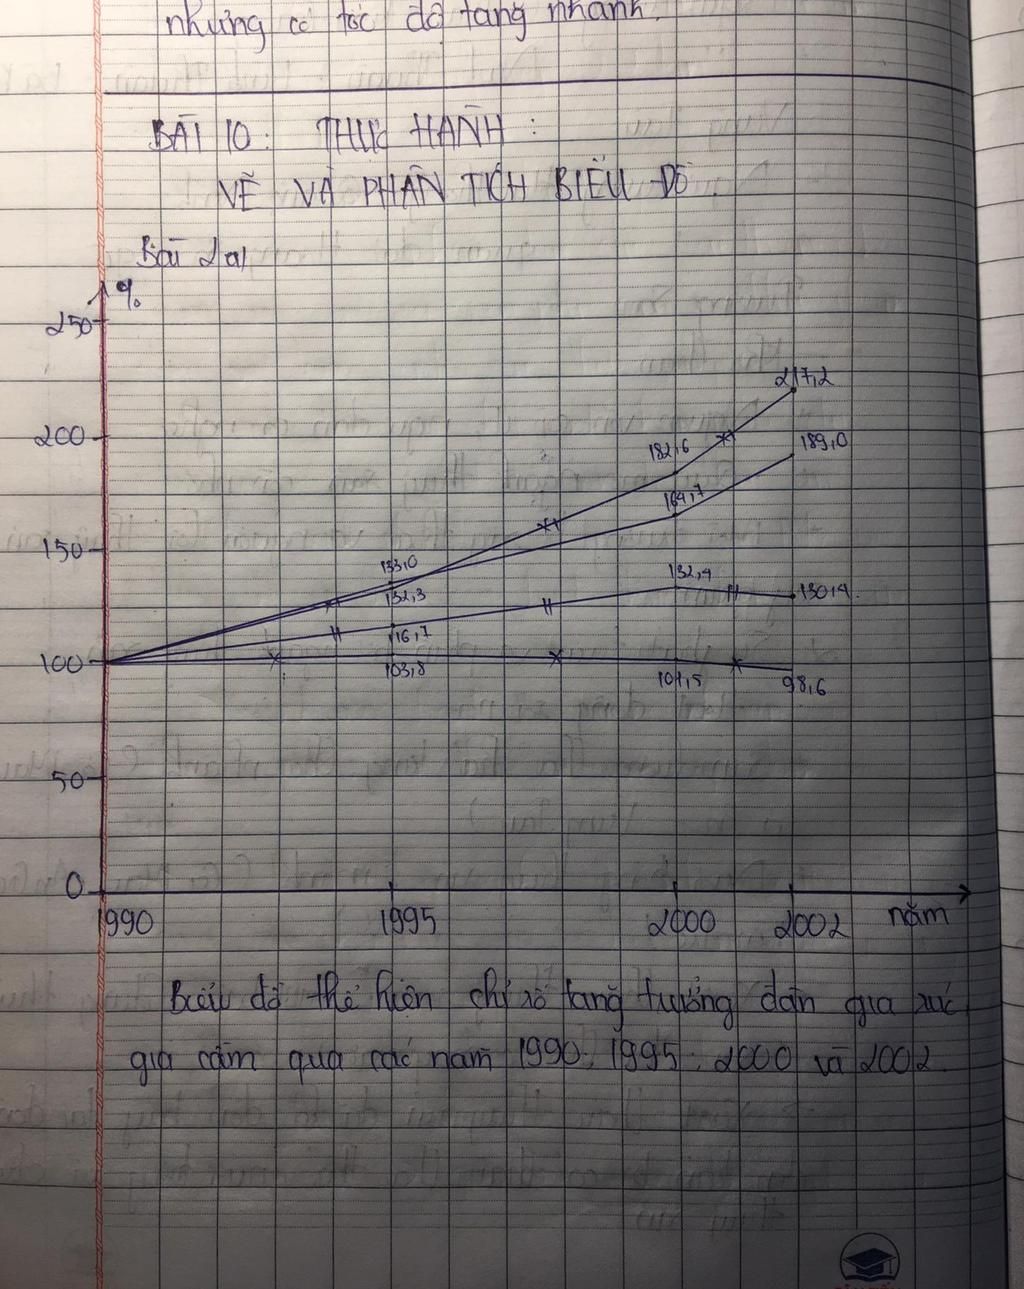 nhưng có tốc độ tăng nhanh.
BÀI 10: THỰC HÀNH:
VẼ VÀ PHÂN TÍCH BIỂU ĐỒ.
Bài 2a)
%
250
217,2
200
189,0
182,6
164,7
150
133,0
132,3
132,4
130,4
116,7
100
103,8
101,5
98,6
50
0
1990 1995 2000 2002 năm
Biểu đồ thể hiện chỉ số tăng trưởng đàn gia súc,
gia cầm qua các năm 1990, 1995, 2000 và 2002.